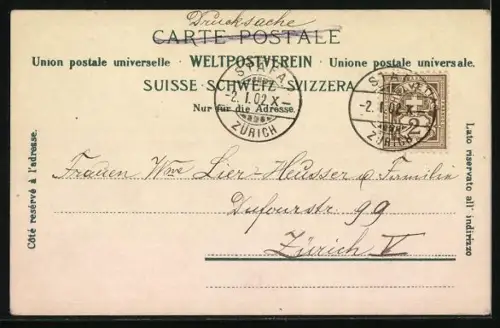 Drucksache
CARTE POSTALE
Union postale universelle. WELTPOSTVEREIN Unione postale universale.
SUISSE SCHWEIZ SVIZZERA
Nur für die Adresse
STÄFA
-2.I.02.X-
ZÜRICH
STÄFA
-2.I.02.X-
ZÜRICH
2
Frauen Wwe Lier-Heusser & Familie
Dufourstr. 99
Zürich V
Côté resérvé à l'adresse.
Lato riservato all' indirizzo